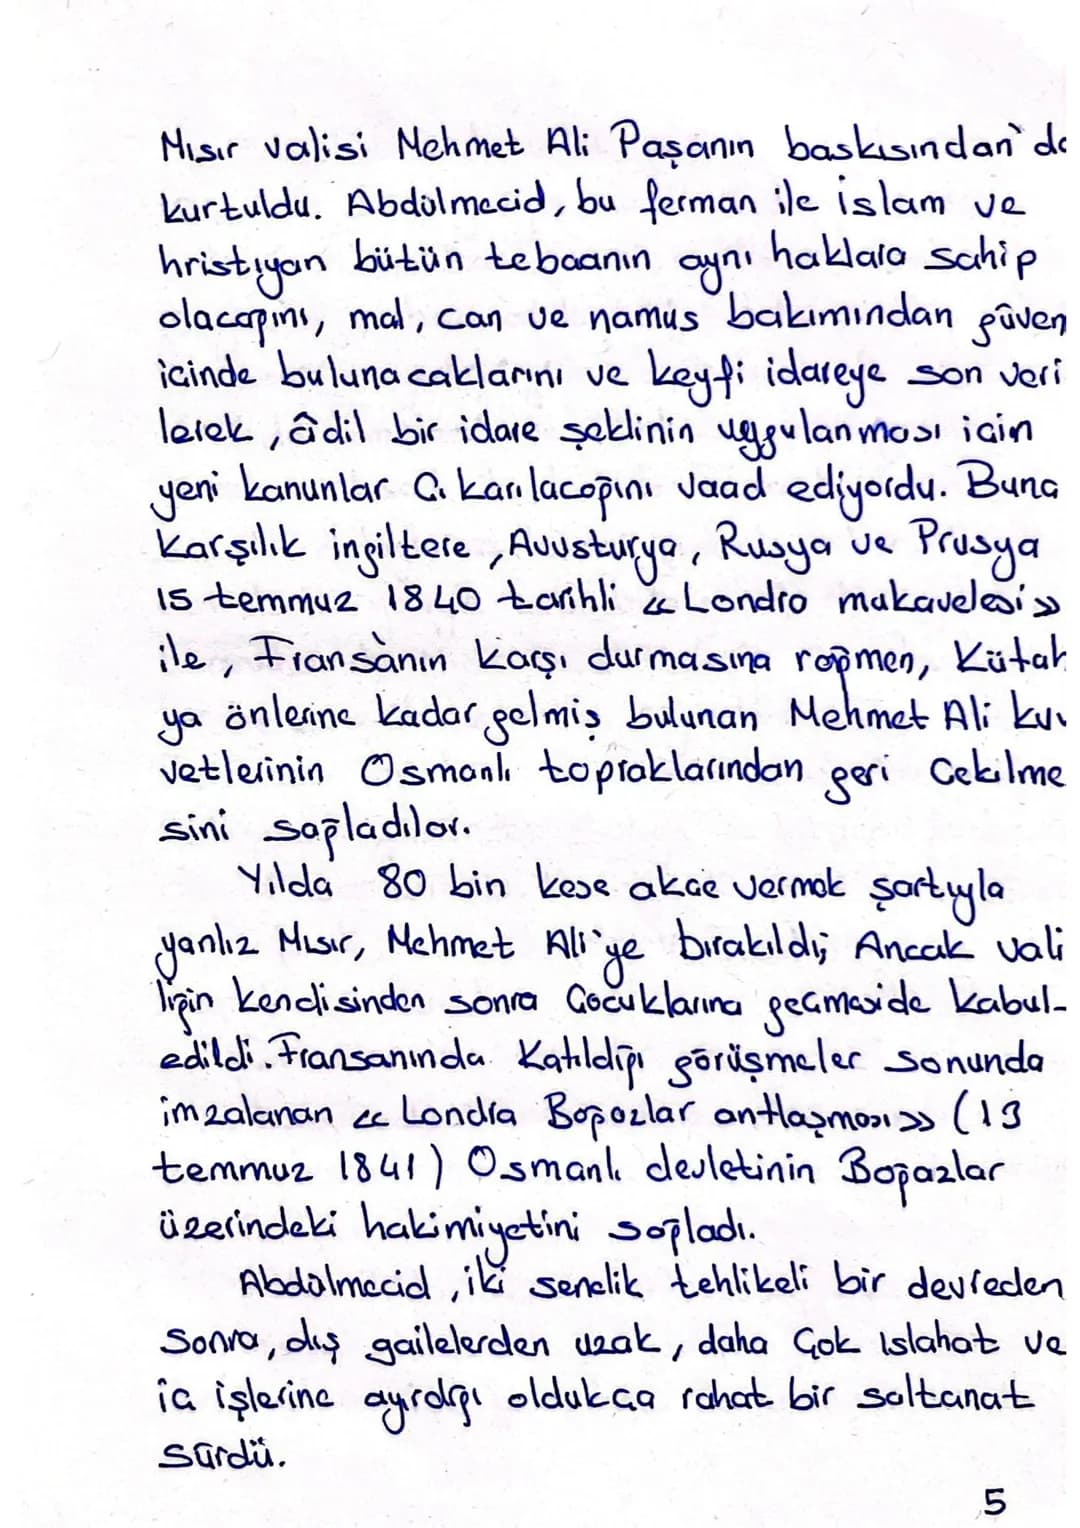 Mısır valisi Mehmet Ali Paşanın baskısından da
kurtuldu. Abdülmecid, bu ferman ile islam ve
hristiyan bütün tebaanın aynı haklara sahip
olacağını, mal, can ve namus bakımından güven
içinde bulunacaklarını ve keyfi idareye son veri
lerek, âdil bir idare şeklinin uygulanması için
yeni kanunlar Çıkarılacağını vaad ediyordu. Buna
Karşılık ingiltere, Avusturya, Rusya ve Prusya
15 temmuz 1840 tarihli «Londra mukavelesi»
ile, Fransanın karşı durmasına rağmen, Kütah
ya önlerine kadar gelmiş bulunan Mehmet Ali kuv
vetlerinin Osmanlı topraklarından geri Çekilme
sini sağladılar.
Yılda 80 bin kese akçe vermek şartıyla
yanlız Mısır, Mehmet Ali'ye bırakıldı; Ancak vali
liğin kendisinden sonra Çocuklarına geçmeside kabul-
edildi. Fransanında Katıldığı görüşmeler sonunda
imzalanan « Londra Boğazlar antlaşması» (13
temmuz 1841) Osmanlı devletinin Boğazlar
üzerindeki hakimiyetini sağladı.
Abdülmecid, iki senelik tehlikeli bir devreden
sonra, dış gailelerden uzak, daha Çok ıslahat ve
iç işlerine ayırdığı oldukça rahat bir saltanat
sürdü.
5